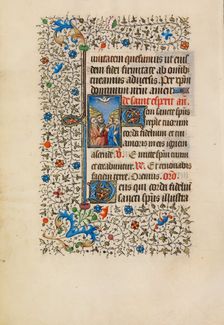 unitatem quesumus ut eius
dem fidei firmitate ab omnibus
muniamur adversis. Per xpm
dominum nrm amen.
de saint esperit an.
Veni sancte spus
reple tuorum
corda fidelium et tui
amoris in eis ignem
accende. V. Emitte spm tuum
et creabuntur. R. Et renovabis
faciem terre. Oremus. oro
Deus qui corda fidelium
sancti spus illustra